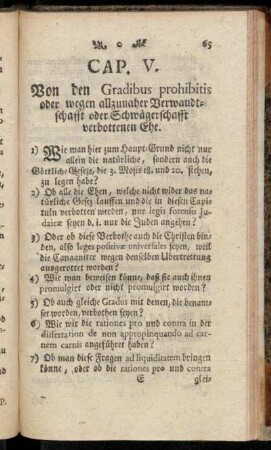 65
CAP. V.
Von den Gradibus prohibitis
oder wegen allzunaher Verwandt-
schafft oder Schwägerschafft
verbottenen Ehe.
1) Wie man hier zum Haupt-Grund nicht nur
allein die natürliche, sondern auch die
Göttliche Gesetze, die 3. Mosis 18. und 20. stehen,
zu legen habe?
2) Ob alle die Ehen, welche nicht wider das na-
türliche Gesetz lauffen und die in diesen Capi-
tuln verbotten werden, nur legis forensis Ju-
daicæ seyen d. i. nur die Juden angehen?
3) Oder ob diese Verbothe auch die Christen bin-
den, also leges positivæ universales seyen, weil
die Cananiter wegen denselben Ubertrettung
ausgerottet worden?
4) Wie man beweisen könne, daß sie auch ihnen
promulgirt oder nicht promulgirt worden?
5) Ob auch gleiche Gradus mit denen, die benam-
set worden, verbothen seyen?
6) Wie wir die rationes pro und contra in der
dissertation de non appropinquando ad car-
nem carnis angeführet haben?
7) Ob man diese Fragen ad liquiditatem bringen
könne, oder ob die rationes pro und contra
E glei-